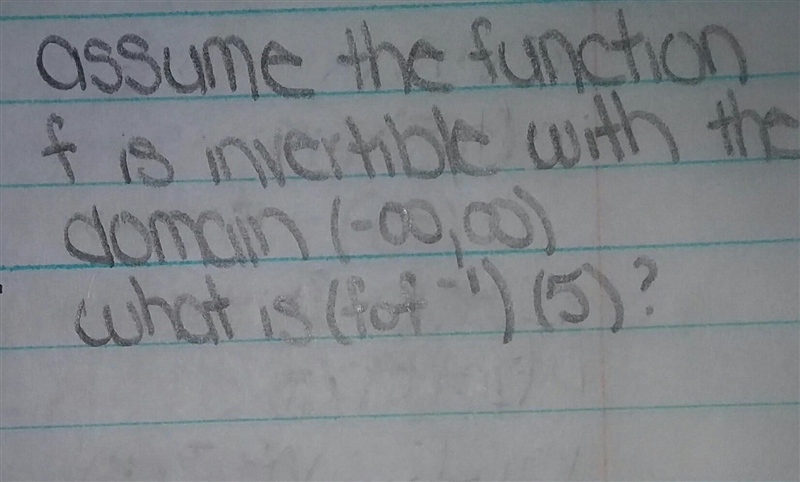 assume the function
f is invertible with the
domain (-∞,∞)
what is (fof⁻¹) (5)?